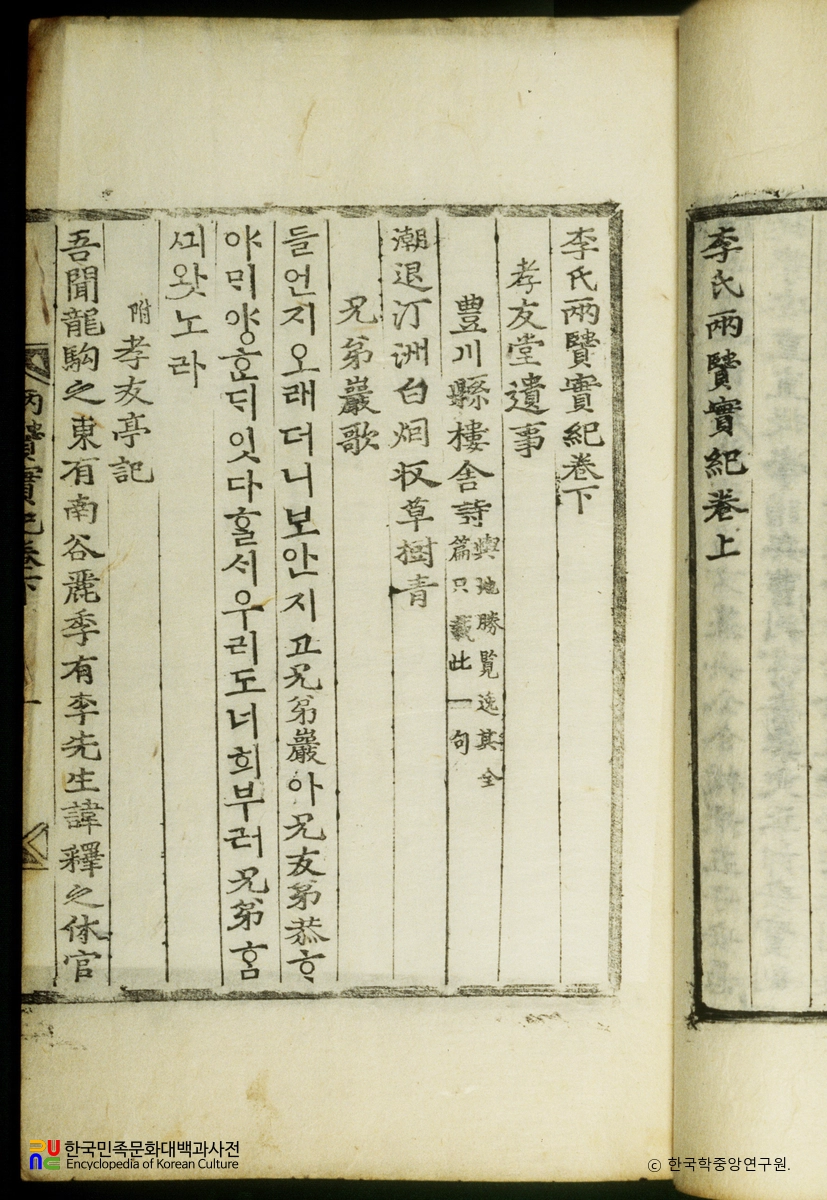 李氏兩賢實紀卷上
李氏兩賢實紀卷下
孝友堂遺事
豊川縣樓舍詩
輿地勝覧逸其全
篇只載此一句
潮退汀洲白烟收草樹青
兄弟巖歌
들언지오래더니보안지고兄弟巖아兄友弟恭ᄒᆞ
야ᄆᆡ양ᄒᆞᆫᄃᆡ잇다ᄒᆞᆯ서우리도너희부러兄弟ᄒᆞᆷ
ᄭᅴ왓노라
附孝友亭記
吾聞龍駒之東有南谷麗季有李先生諱釋之休官
兩賢實紀卷下
一
한국민족문화대백과사전
Encyclopedia of Korean Culture
ⓒ 한국학중앙연구원.